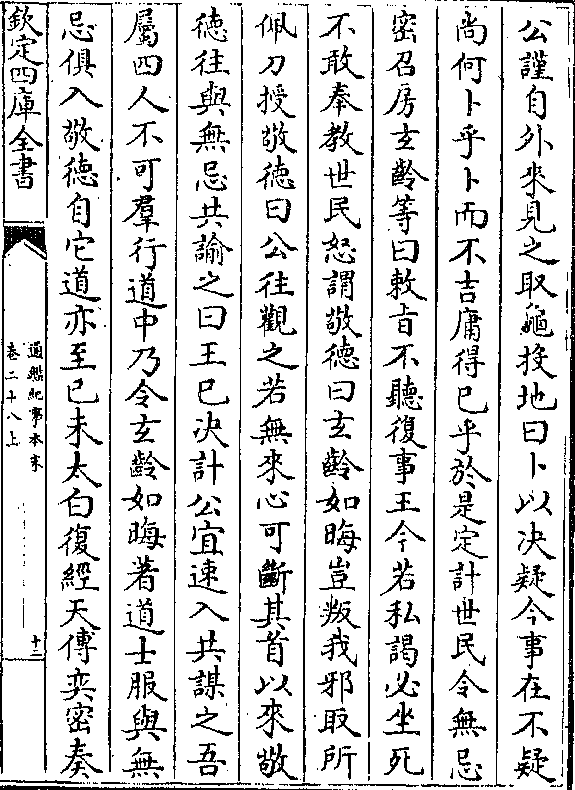 公謹自外來見之取龜投地曰卜以决疑今事在不疑
尚何卜乎卜而不吉庸得已乎於是定計世民令無忌
密召房玄齡等曰敕㫖不聽復事王今若私謁必坐死
不敢奉教世民怒謂敬徳曰玄齡如晦豈叛我邪取所
佩刀授敬徳曰公往觀之若無來心可斷其首以來敬
徳往與無忌共諭之曰王已决計公宜速入共謀之吾
屬四人不可羣行道中乃令玄齡如晦著道士服與無
忌俱入敬徳自它道亦至已未太白復經天傅奕密奏
欽定四庫全書
通鑑紀事本末
卷二十八上
十三